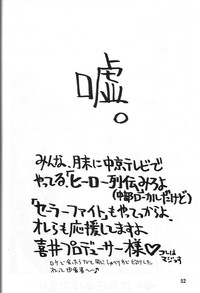 嘘。
みんな、月末に中京テレビで
やってる、「ヒーロー列伝」みろよ
(中部ローカルだけど)
「セーラーファイト」もやってっからよ。
オレらも応援してますよ
喜井プロデューサー様♡
コレは
マジっす
52